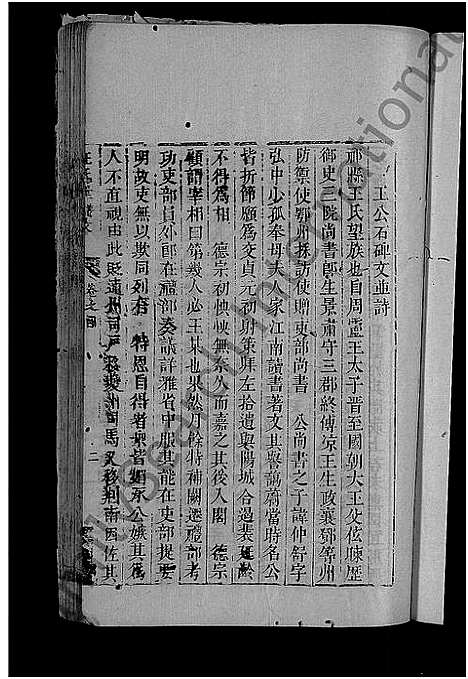 王公石碑文並詩
神縣王氏望族也自周靈王太子晉至國朝大王父弦暕歷
御史三院尚書郎生景肅守三郡終傅涼王生政襄鄧等州
防禦使鄂州採訪使贈吏部尚書 公尚書之子諱仲舒字
弘中少孤奉母夫人家江南讀書著文其譽藹蔚當時名公
皆折節願爲交貞元初射策拜左拾遺與陽城合遏裴延齡
不得爲相 德宗初怏怏無奈久而嘉之其後入閣 德宗
顧謂宰相曰第幾人必王某也果然月餘特補闕遷禮部考
功吏部員外郎在禮部奏議詳雅省中服其能在吏部提要
明故吏無以欺同列有 特恩自得者衆皆媚承公嫉其爲
人不直視由此貶連州司戶移夔州司馬又移荆南因佐其
卷之四
二
Research International